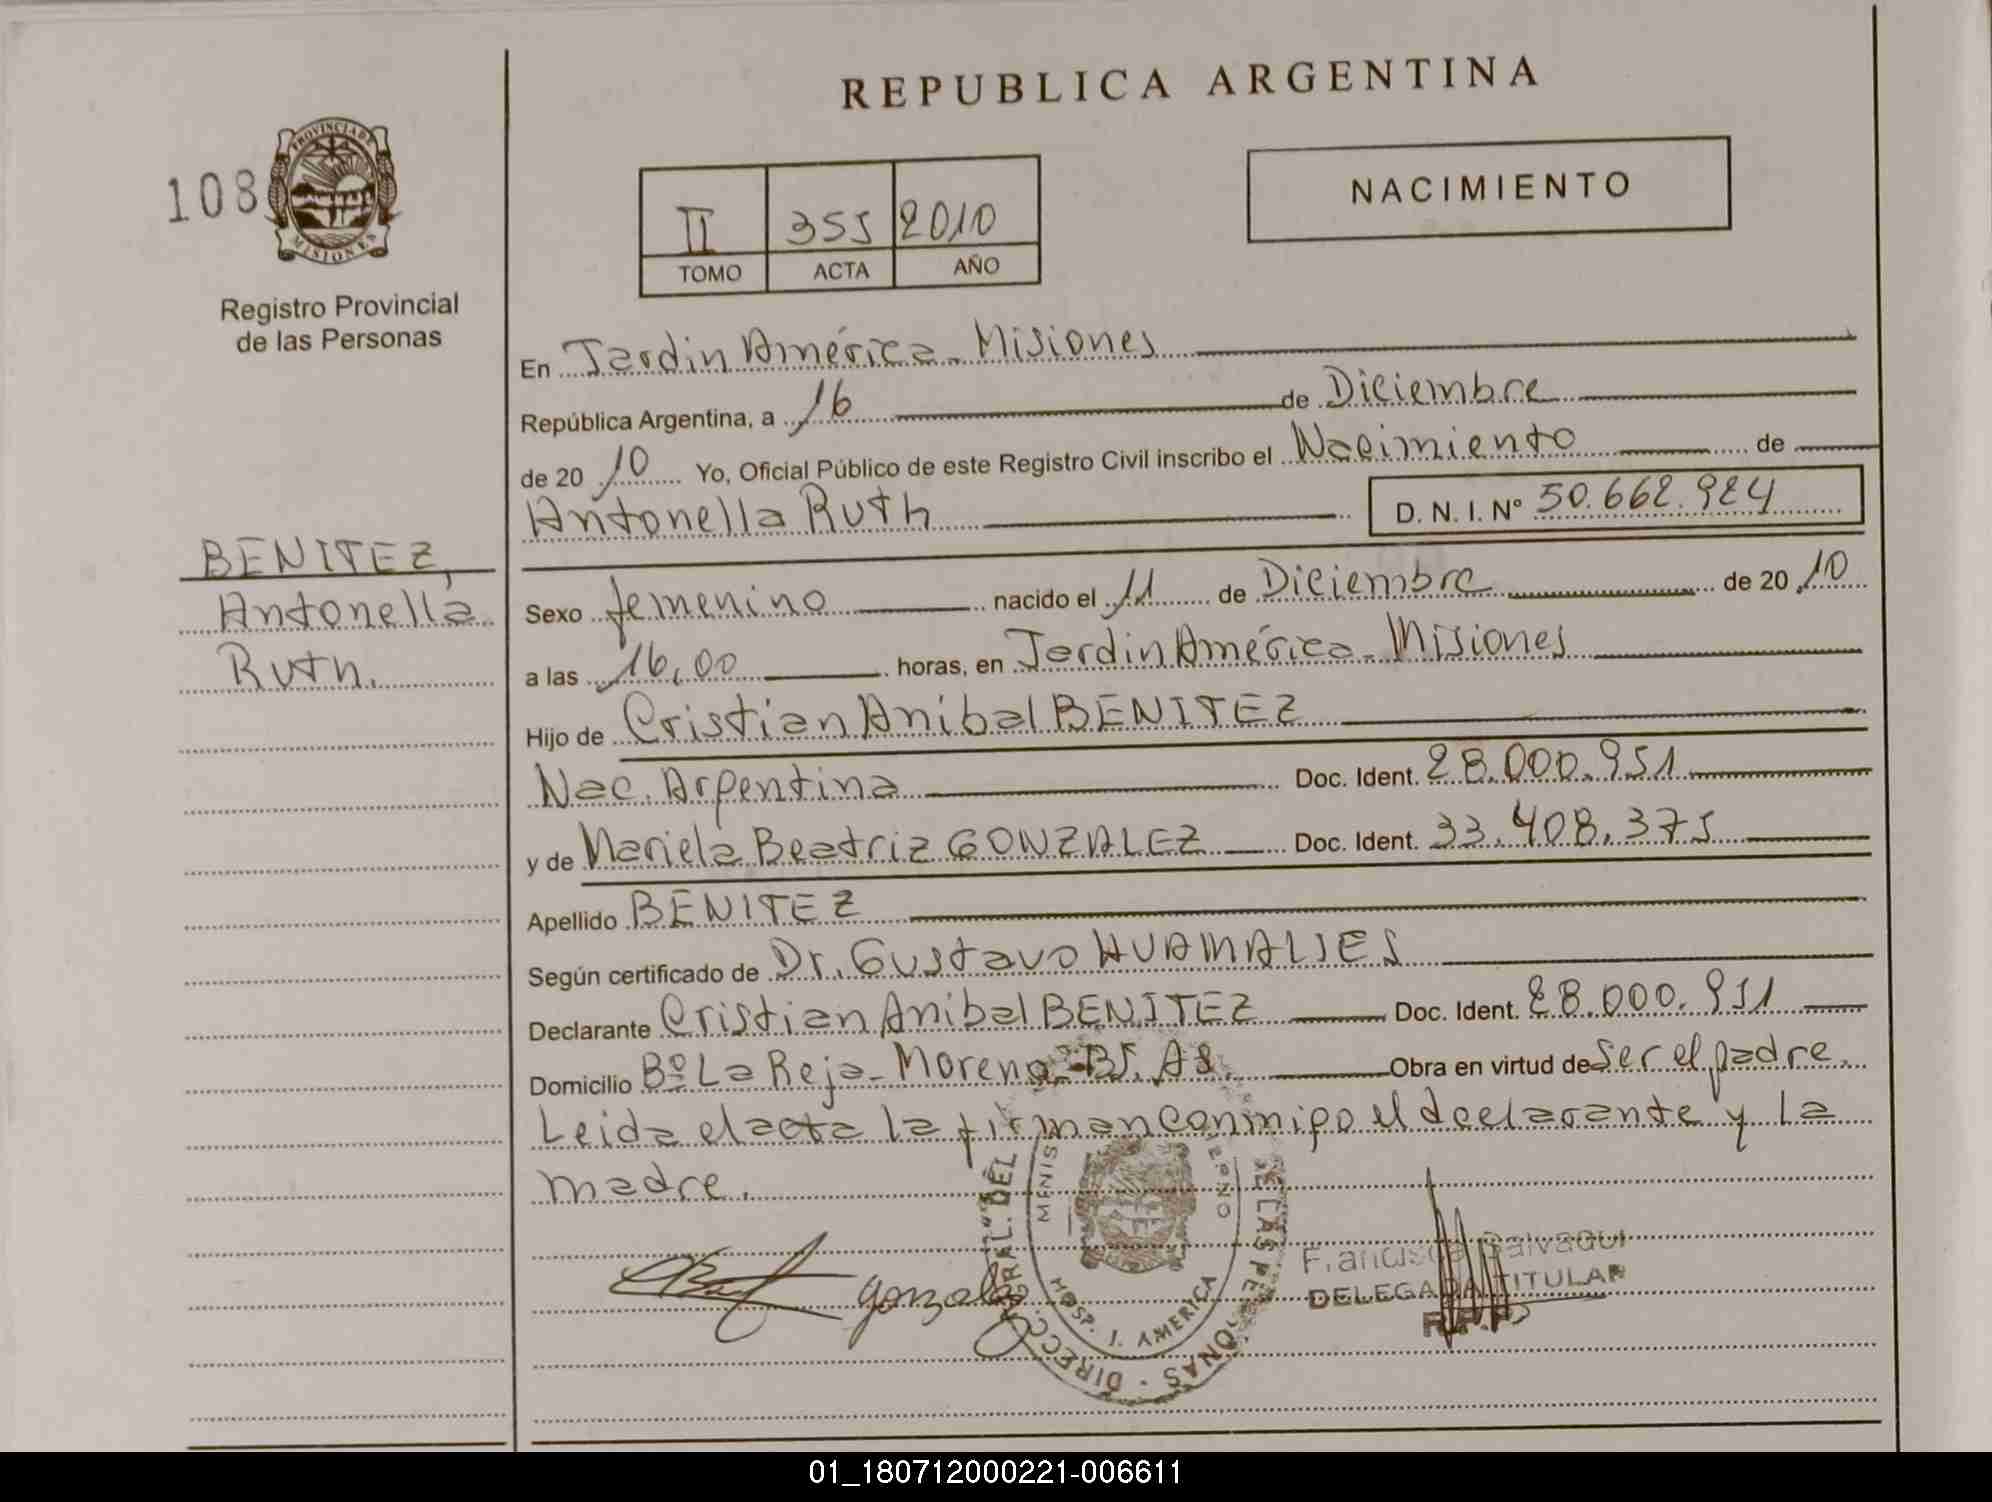 REPUBLICA ARGENTINA
108
PROVINCIA DE
MISIONES
Registro Provincial
de las Personas
II 355 2010
TOMO ACTA AÑO
NACIMIENTO
En Jardin América - Misiones
República Argentina, a 16 de Diciembre
de 20 10 Yo, Oficial Público de este Registro Civil inscribo el Nacimiento de
Antonella Ruth D. N. I. Nº 50.662.924
BENITEZ,
Antonella
Ruth.
Sexo femenino nacido el 11 de Diciembre de 20 10
a las 16,00 horas, en Jardin América - Misiones
Hijo de Cristian Anibal BENITEZ
Nac. Argentina Doc. Ident. 28.000.951
y de Mariela Beatriz GONZALEZ Doc. Ident. 33.408.375
Apellido BENITEZ
Según certificado de Dr. Gustavo HUAMALIES
Declarante Cristian Anibal BENITEZ Doc. Ident. 28.000.951
Domicilio Bº La Reja - Moreno - BS. AS. Obra en virtud de Ser el padre.
Leida el acta la firman conmigo el declarante y la
madre.
DIRECC. GRAL. DEL
DE LAS PERSONAS
HOSP. J. AMERICA
Gonzalez
Francisca Salvagui
DELEGADA TITULAR
R.P.P.
01_180712000221-006611